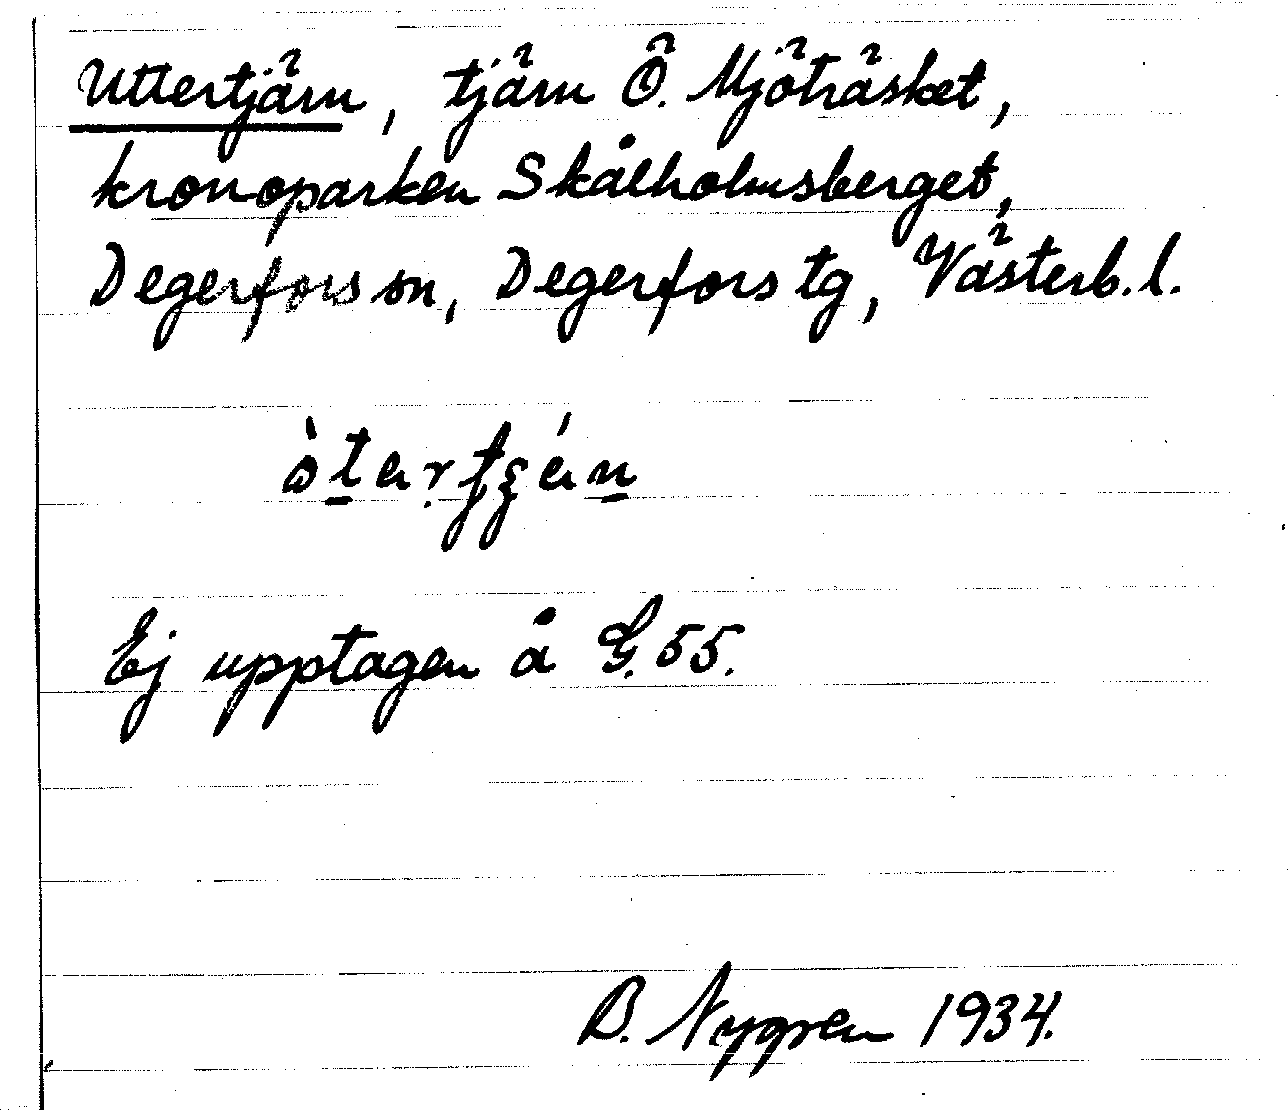 Uttertjärn, tjärn Ö. Mjöträsket,
kronoparken Skålholmsberget,
Degerfors sn, Degerfors tg, Västerb. l.
Ej upptagen å G. 55.
B. Nygren 1934.